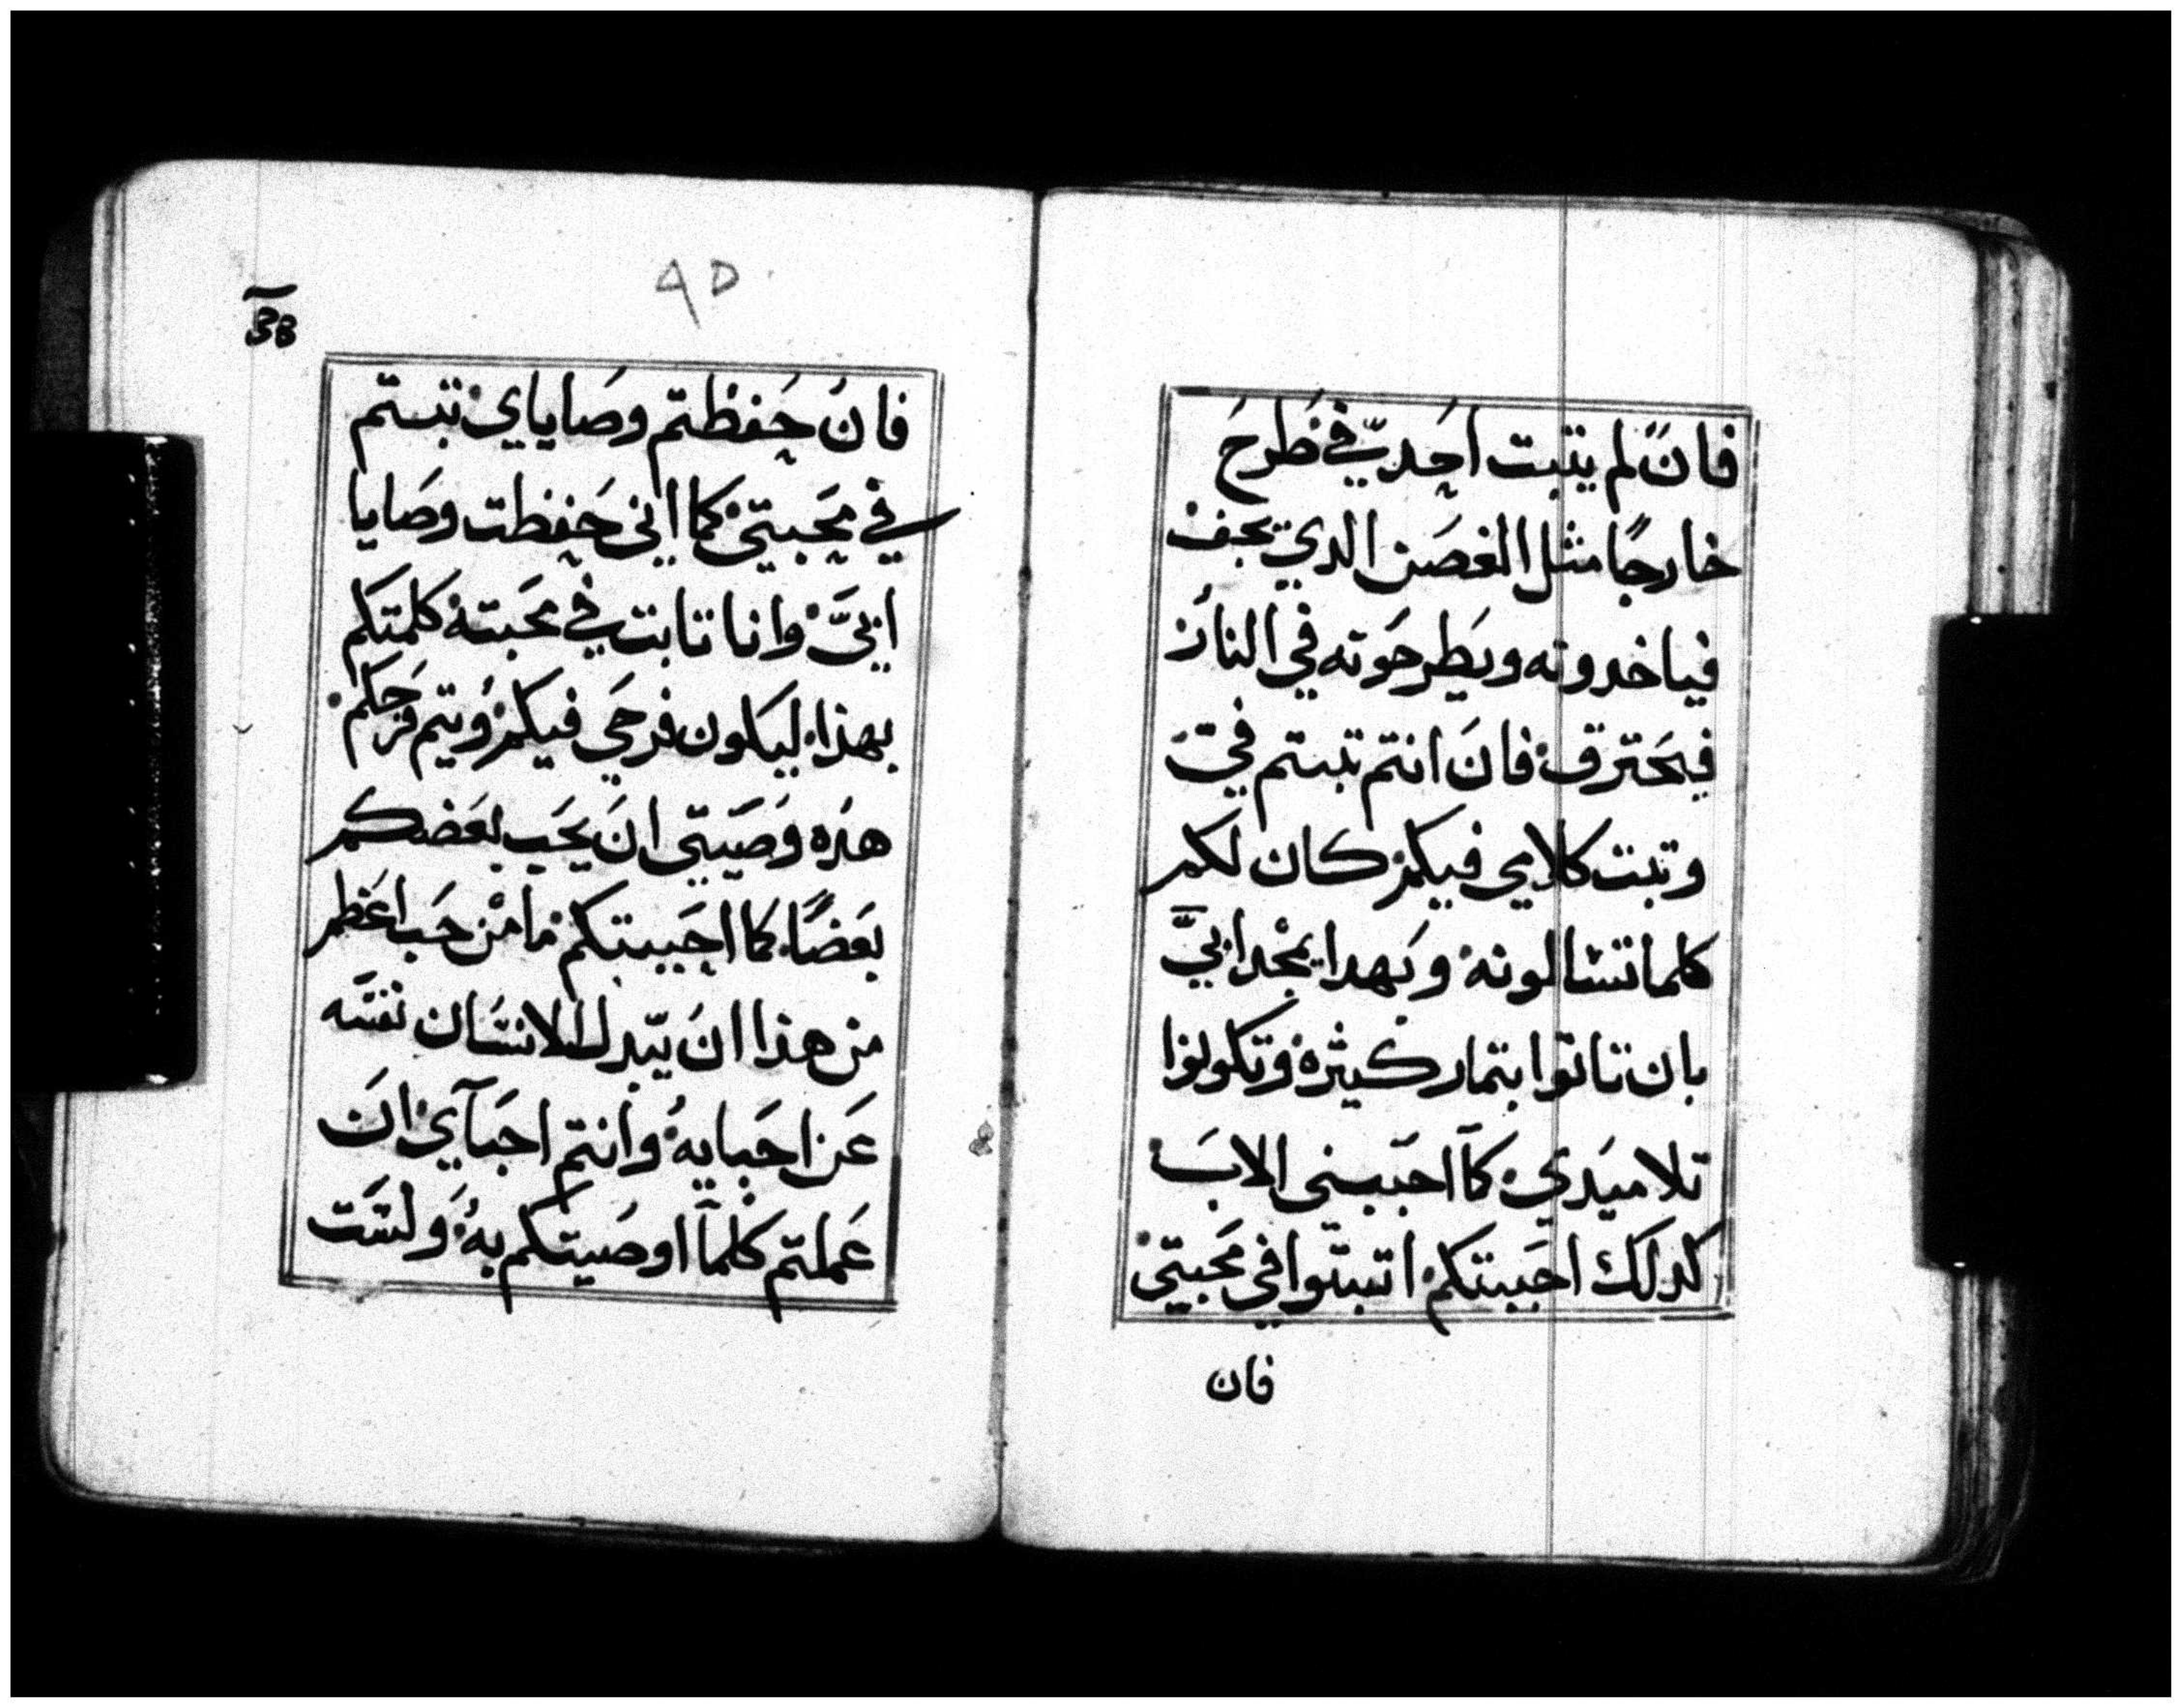 فان لم يتبت احد في طرح
خارجًا مثل الغصن الدي يجف
فياخدونه ويطرحونه في النار
فيحترق فان انتم تبتم في
وتبت كلامي فيكم كان لكم
كلما تشالونه وبهدا يمجد ابي
بان تاتوا بتمار كثيرة وتكونوا
تلاميدي كما احببني الاب
كدلك احببتكم اتبتوا في محبتي
فان
٩٥
فان حفظتم وصاياي تبتم
في محبتي كما اني حفظت وصايا
ابي وانا تابت في محبته كلمتكم
بهذا ليكون فرحي فيكم ويتم فرحكم
هذه وصيتي ان يحب بعضكم
بعضًا كما احببتكم ما من حب اعظم
من هذا ان يبدل الانسان نفسه
عن احبايه وانتم احبآي ان
عملتم كلما اوصيتكم به ولست